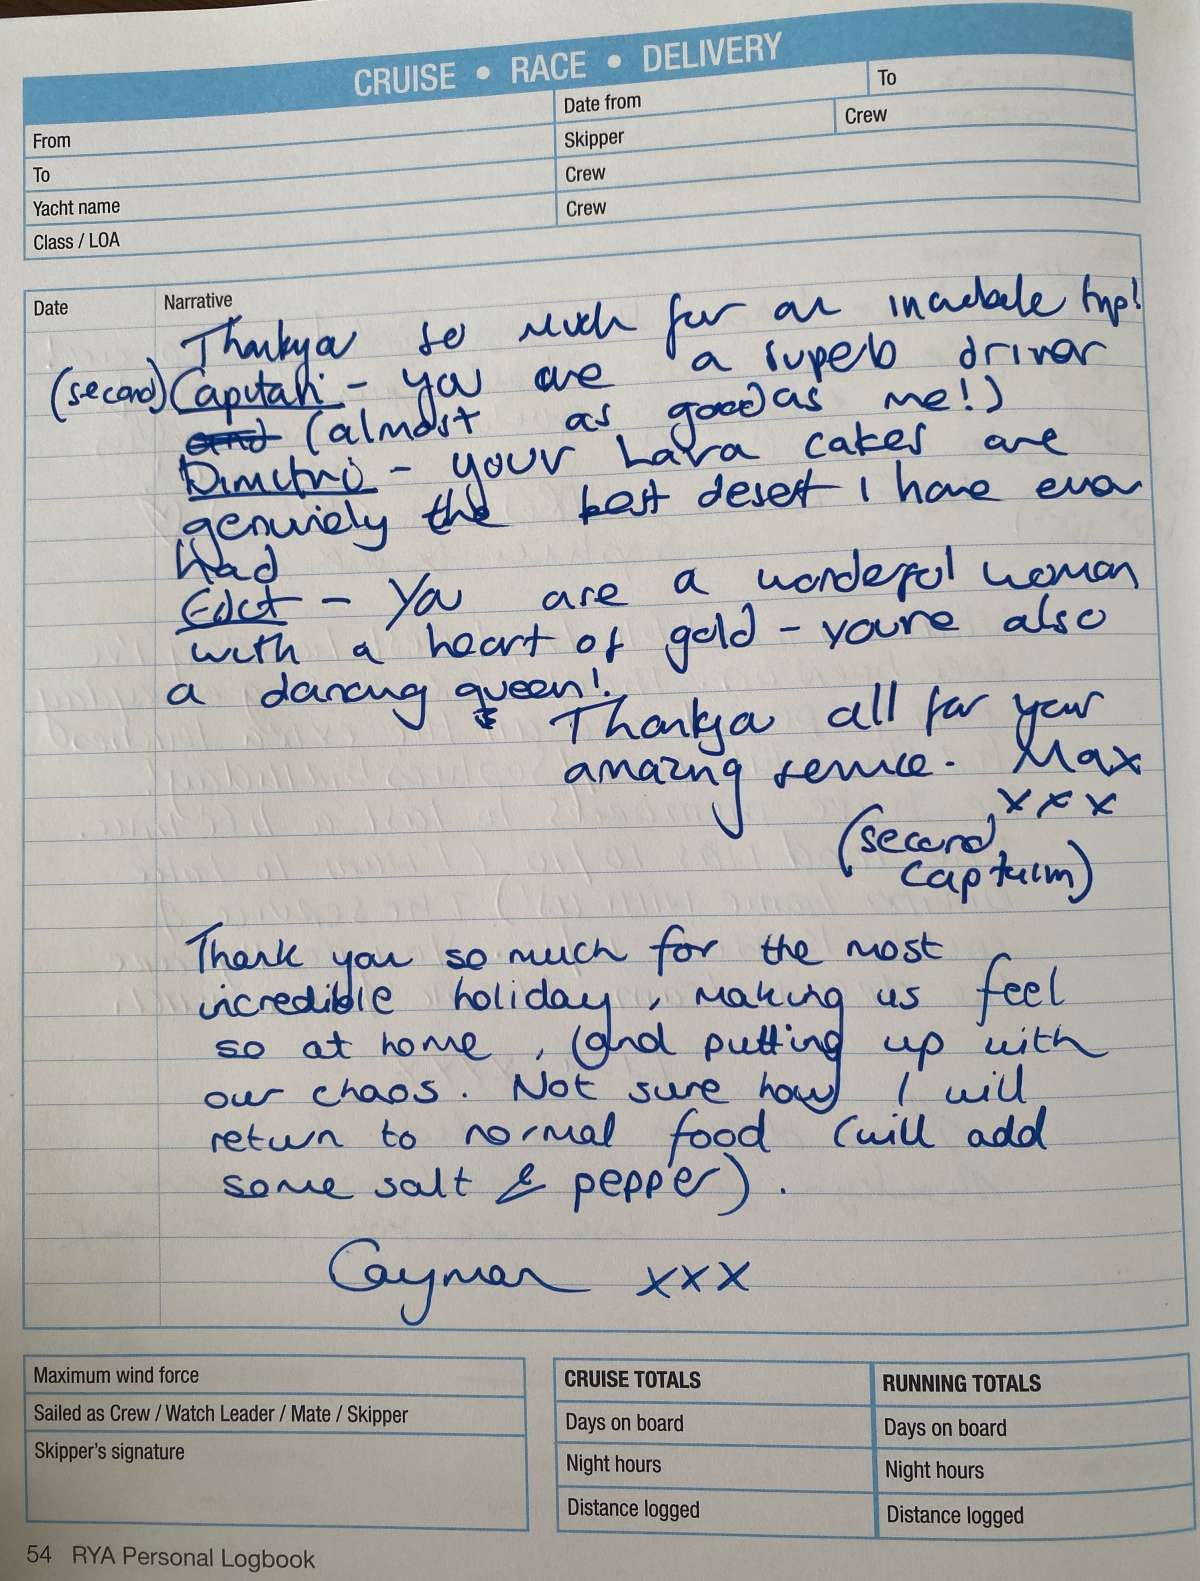 CRUISE • RACE • DELIVERY
From
Date from
To
To
Skipper
Crew
Yacht name
Crew
Class / LOA
Crew
Date
Narrative
Thankyou so much for an incredible trip!
(second) Captain - you are a superb driver
and (almost as good as me!)
Dimitrio - your Lava cakes are
genuiely the best desert I have ever
had
Edit - You are a wonderful woman
with a heart of gold - youre also
a dancing queen!
Thankyou all for your
amazing service. Max
xxx
(second
captain)
Thank you so much for the most
incredible holiday, making us feel
so at home, (and putting up with
our chaos. Not sure how I will
return to normal food (will add
some salt & pepper).
Cayman xxx
Maximum wind force
Sailed as Crew / Watch Leader / Mate / Skipper
Skipper's signature
CRUISE TOTALS
RUNNING TOTALS
Days on board
Days on board
Night hours
Night hours
Distance logged
Distance logged
54 RYA Personal Logbook